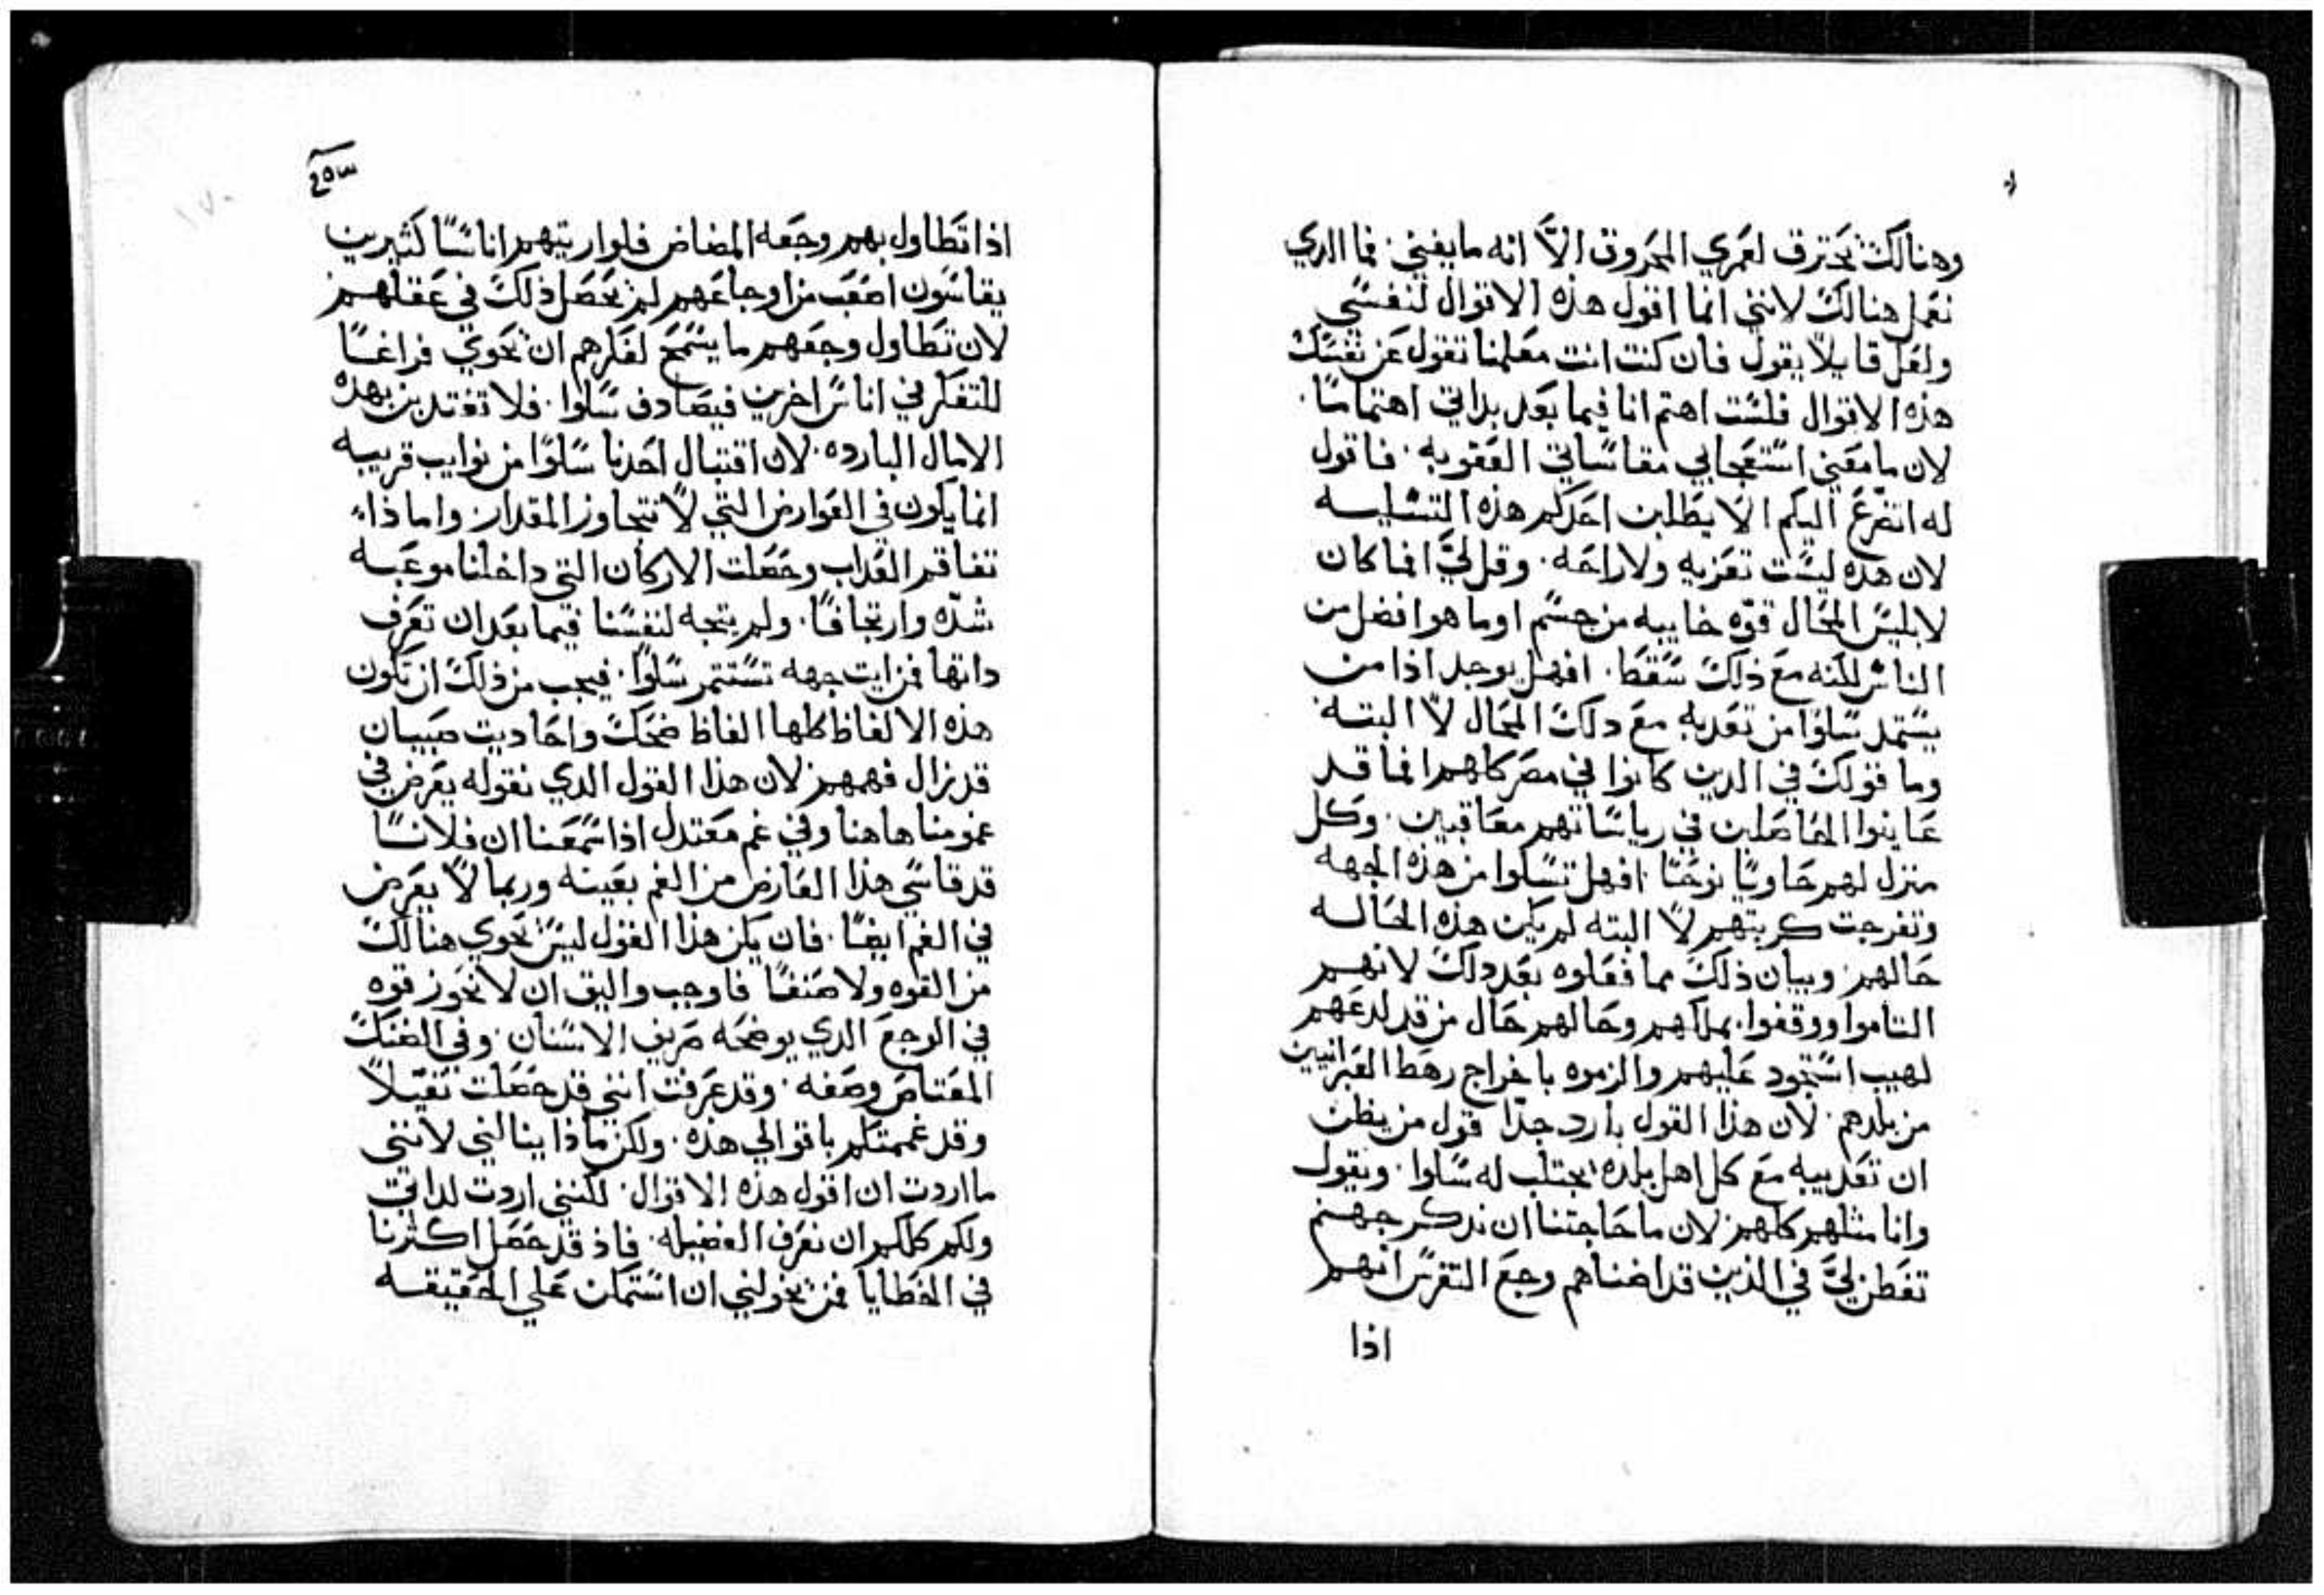 وهنالك يحترق لعمري المحروق الاّ انه ما يفني. فما الدي
نعمل هنالك لانني انما اقول هذه الاقوال لنفسي
ولعل قايلاً يقول فان كنت انت معلمنا تقول عن نفسك
هذه الاقوال فلست اهتم انا فيما بعد بداتي اهتماما.
لان ما معني استعجابي مقاساتي العقوبه. فاقول
له اتضرع اليكم الا يطلبن احدكم هذه التسليه
لان هده ليست تعزيه ولا راحه. وقل لي انما كان
لابليس المحال قوه خاييه من جسم اوما هو افضل من
الناس لكنه مع ذلك سقط. افهل يوجد اذا من
يستمد سلوا من تعديبه مع دلك المحال لا البته.
وما قولك في الدين كانوا في مصر كلهم انما قد
عاينوا الحاصلين في رياساتهم معاقبين. وكل
منزل لهم حاويا نوحا افهل تسلوا من هذه الجهه
وتفرجت كربتهم لا البته لم يكن هذه الحاله
حالهم. وبيان ذلك مما فعلوه بعد دلك لانهم
التاموا ووقفوا بملكهم وحالهم حال من قد لدعهم
لهيب استحود عليهم والزموه باخراج رهط العبرانيين
من بلدهم. لان هذا القول بارد جدا قول من يظن
ان تعديبه مع كل اهل بلده يجتلب له سلوا. ويقول
وانا مثلهم كلهم. لان ما حاجتنا ان ندكر جهنم
تفطن لي في الذين قد اضناهم وجع النقرس انهم
اذا
٤٥٣
اذا تطاول بهم وجعه المضاض فلو اريتهم اناسا كثيرين
يقاسون اصعب من اوجاعهم لم يحصل ذلك في عقلهم
لان تطاول وجعهم ما يسمح لفكرهم ان يحوي فراغا
للتفكر في اناس اخرين فيصادف سلوا. فلا تغتدين بهده
الامال البارده. لان اقتبال احدنا سلوا من نوايب قريبه
انما يكون في العوارض التي لا تتجاوز المقدار. واما ذا
تفاقم العداب وحصلت الاركان التي داخلنا موعبه
شده وارتجافا. ولم يتجه لنفسنا فيما بعد ان تعرف
داتها فمن ايت جهه تستتمر سلوا. فيجب من ذلك ان تكون
هذه الالفاظ كلها الفاظ ضحك واحاديت صبيان
قد زال فهمهم. لان هذا القول الدي نقوله يعرض في
غمومنا هاهنا وفي غم معتدل اذا سمعنا ان فلانا
قد قاسي هذا العارض من الغم بعينه وربما لا يعرض
في الغم ايضا. فان يكن هذا القول ليس يحوي هنالك
من القوه ولا صنفا فاوجب واليق ان لا نحوز قوه
في الوجع الدي يوضحه صريف الاسنان. وفي الضنك
المعتاص وصفه. وقد عرفت انني قد حصلت تقيلا
وقد غممتكم باقوالي هذه. ولكن ماذا ينالني لانني
ما اردت ان اقول هذه الاقوال. لكنني اردت لداتي
ولكم كلكم ان نعرف الفضيله. فاذ قد حصل اكثرنا
في الخطايا فمن يخولني ان استمكن علي الحقيقه